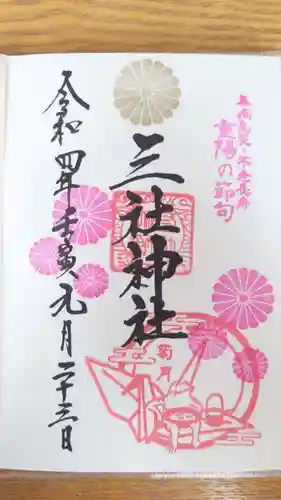 重陽の節句
三社神社
菊月
令和四年壬寅九月二十三日